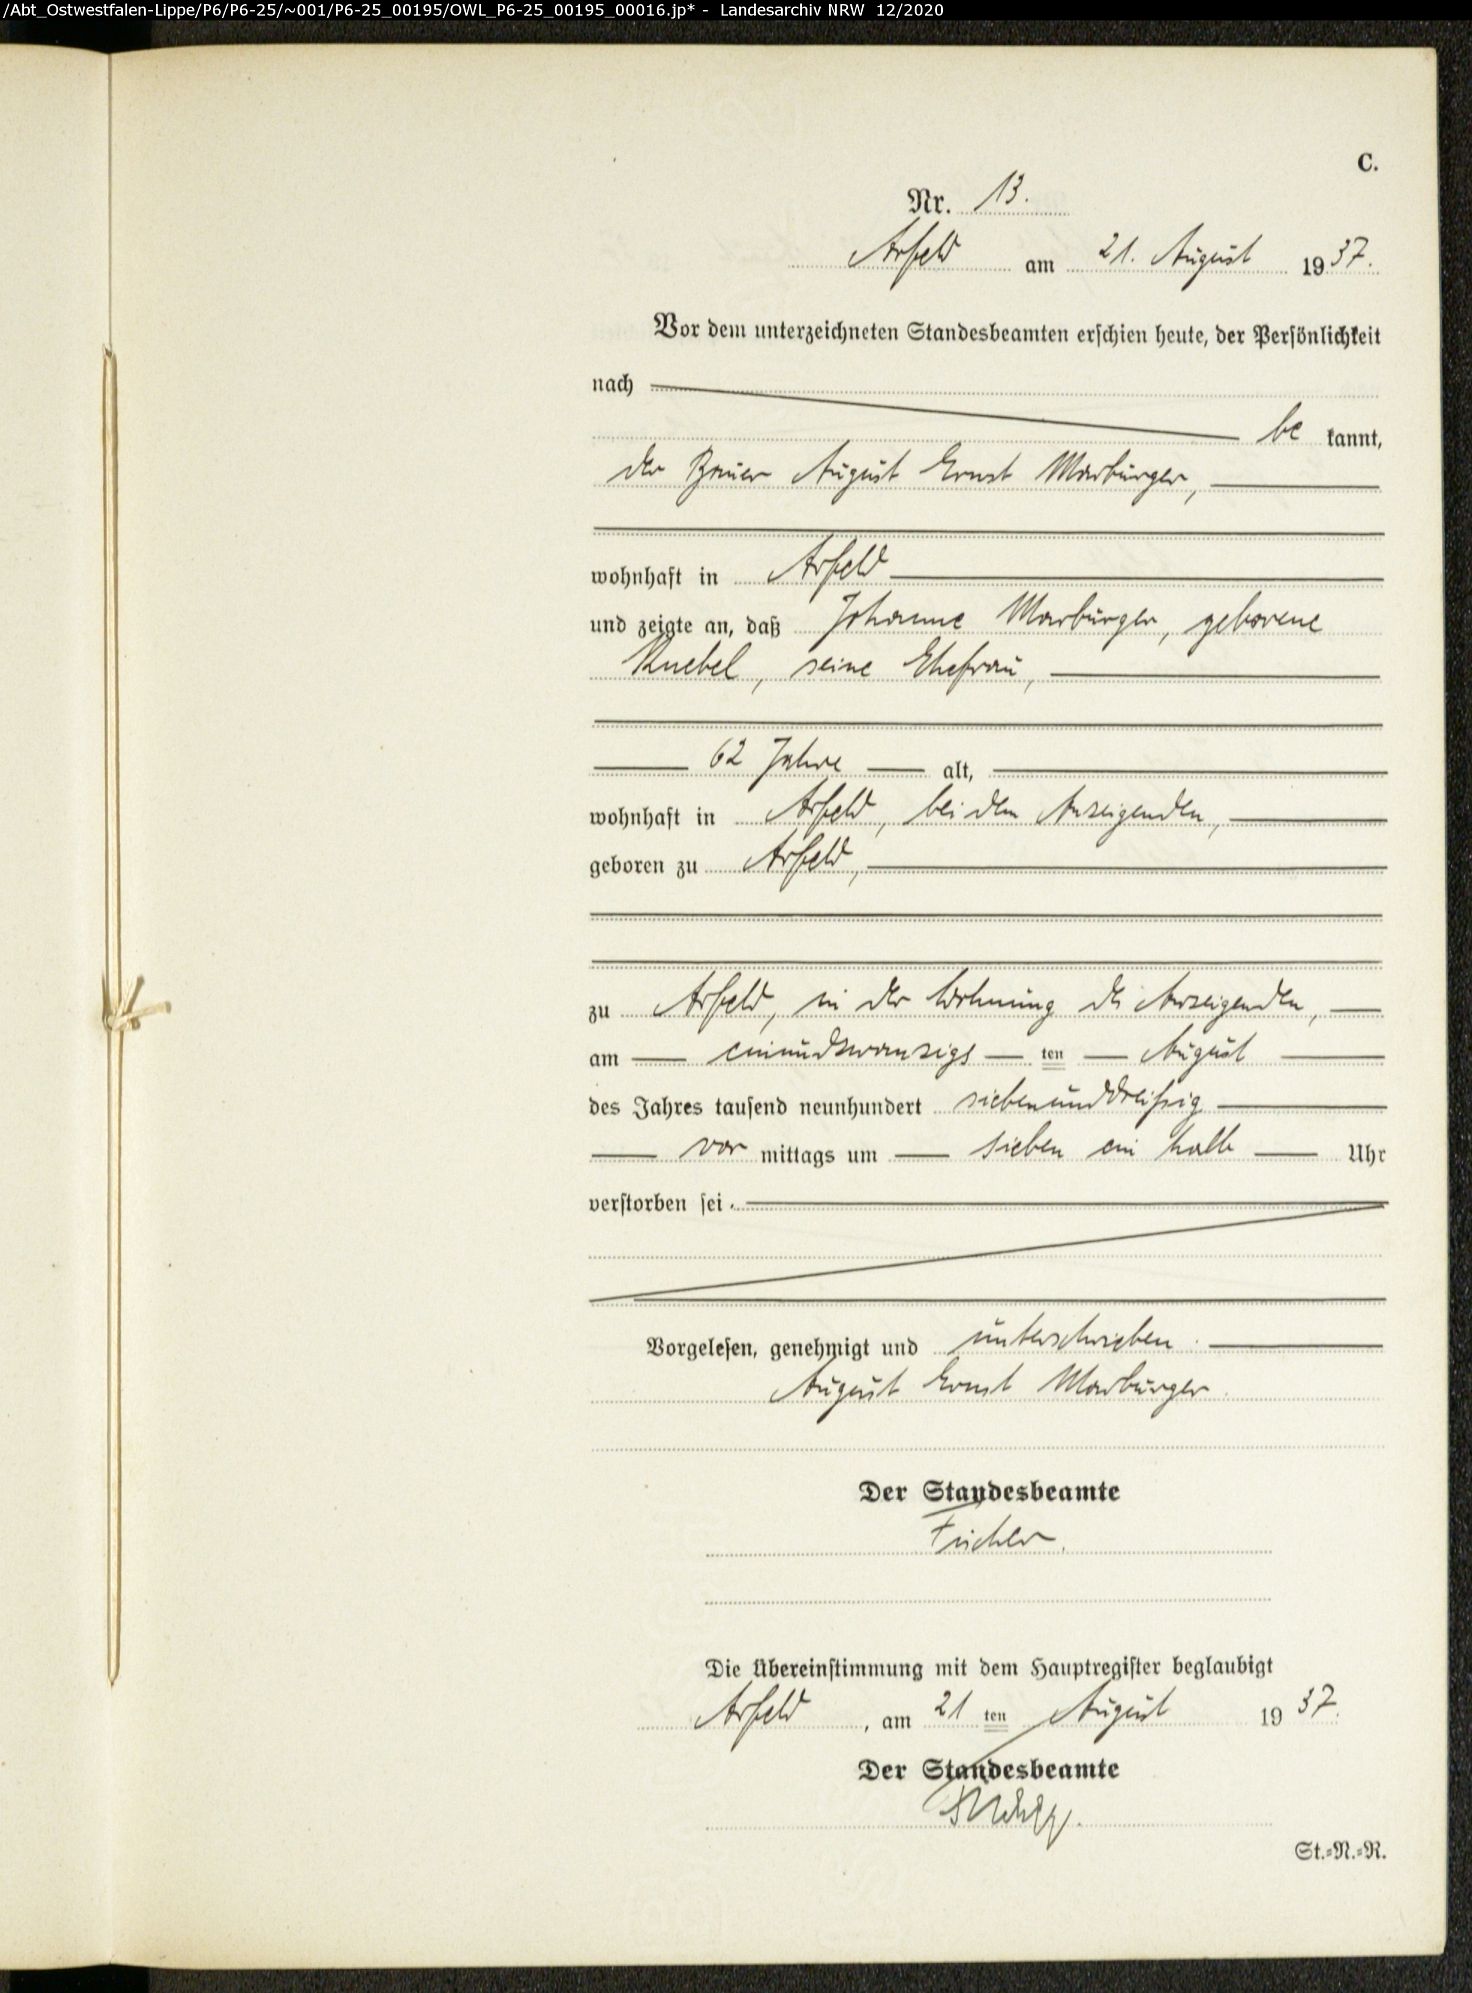 /Abt_Ostwestfalen-Lippe/P6/P6-25/~001/P6-25_00195/OWL_P6-25_00195_00016.jp* - Landesarchiv NRW 12/2020
C.
Nr. 13.
Arfeld am 21. August 1937.
Vor dem unterzeichneten Standesbeamten erschien heute, der Persönlichkeit
nach
be kannt,
der Bauer August Ernst Marburger,
wohnhaft in Arfeld
und zeigte an, daß Johanne Marburger, geborene
Knebel, seine Ehefrau,
62 Jahre alt,
wohnhaft in Arfeld, bei dem Anzeigenden,
geboren zu Arfeld,
zu Arfeld, in der Wohnung des Anzeigenden,
am einundzwanzigs ten August
des Jahres tausend neunhundert siebenunddreißig
vor mittags um sieben ein halb Uhr
verstorben sei.
Vorgelesen, genehmigt und unterschrieben.
August Ernst Marburger.
Der Standesbeamte
Die Übereinstimmung mit dem Hauptregister beglaubigt
Arfeld, am 21 ten August 1937.
Der Standesbeamte
St.=N.=R.